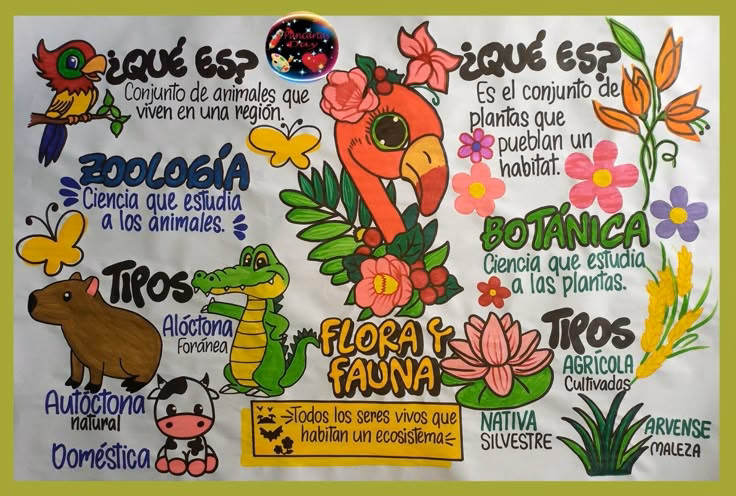 ¿QUÉ ES?
Conjunto de animales que
viven en una región.
ZOOLOGÍA
Ciencia que estudia
a los animales.
TIPOS
Alóctona
Foránea
Autóctona
natural
Doméstica
Pancartas
Day
FLORA Y
FAUNA
Todos los seres vivos que
habitan un ecosistema
¿QUÉ ES?
Es el conjunto de
plantas que
pueblan un
habitat.
BOTÁNICA
Ciencia que estudia
a las plantas.
TIPOS
AGRÍCOLA
Cultivadas
NATIVA
SILVESTRE
ARVENSE
MALEZA